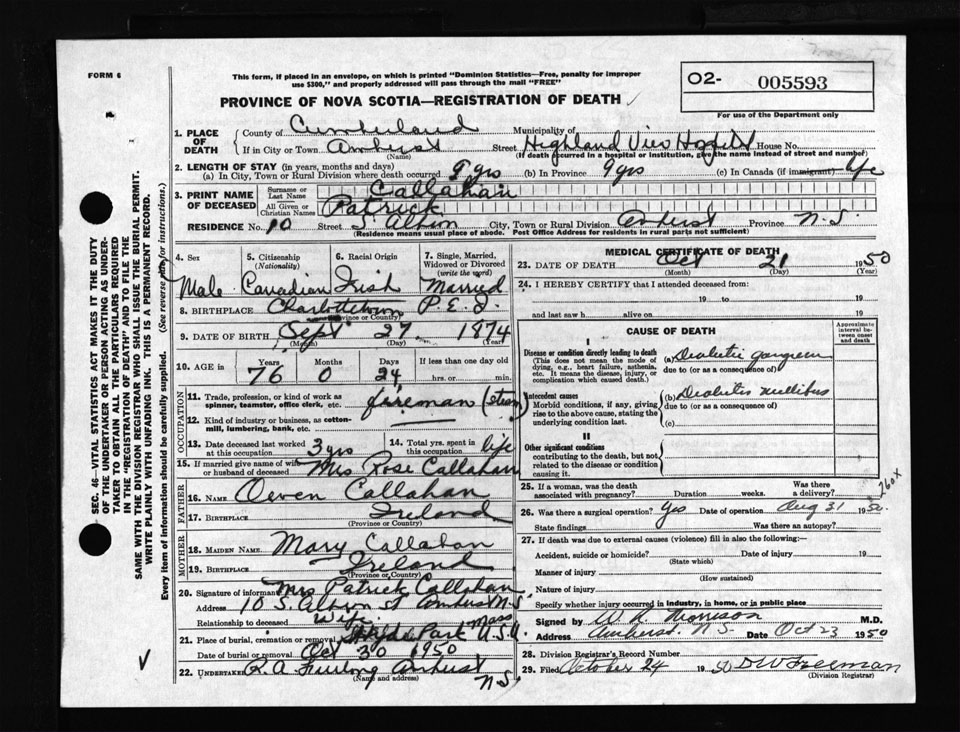 FORM 6
This form, if placed in an envelope, on which is printed "Dominion Statistics—Free, penalty for improper
use $300," and properly addressed will pass through the mail "FREE"
O2- 005593
For use of the Department only
PROVINCE OF NOVA SCOTIA—REGISTRATION OF DEATH
1. PLACE OF DEATH County of Cumberland Municipality of
If in City or Town Amherst (Name) Street Highland View Hospital House No.
(If death occurred in a hospital or institution, give the name instead of street and number)
2. LENGTH OF STAY (in years, months and days)
(a) In City, Town or Rural Division where death occurred 9 yrs (b) In Province 9 yrs (c) In Canada (if immigrant) life
3. PRINT NAME OF DECEASED Surname or Last Name Callahan
All Given or Christian Names Patrick
RESIDENCE No. 10 Street S. Albion City, Town or Rural Division Amherst Province N.S.
(Residence means usual place of abode. Post Office Address for residents in rural parts not sufficient)
4. Sex 5. Citizenship (Nationality) 6. Racial Origin 7. Single, Married, Widowed or Divorced (write the word)
Male Canadian Irish Married
8. BIRTHPLACE Charlottetown P.E.I.
(Province or Country)
9. DATE OF BIRTH Sept 27 1874
(Month) (Day) (Year)
10. AGE in Years Months Days If less than one day old
76 0 24 hrs. or min.
OCCUPATION
11. Trade, profession, or kind of work as spinner, teamster, office clerk, etc. fireman (steam)
12. Kind of industry or business, as cotton-mill, lumbering, bank, etc.
13. Date deceased last worked at this occupation 3 yrs 14. Total yrs. spent in this occupation life
15. If married give name of wife or husband of deceased Mrs Rose Callahan
FATHER
16. NAME Owen Callahan
17. BIRTHPLACE Ireland
(Province or Country)
MOTHER
18. MAIDEN NAME Mary Callahan
19. BIRTHPLACE Ireland
(Province or Country)
20. Signature of informant Mrs Patrick Callahan
Address 10 S. Albion St Amherst N.S.
Relationship to deceased Wife
21. Place of burial, cremation or removal Hyde Park Mass U.S.A.
Date of burial or removal Oct 30 1950
22. UNDERTAKER R.A. Furlong Amherst N.S.
(Name and address)
MEDICAL CERTIFICATE OF DEATH
23. DATE OF DEATH Oct 21 1950
(Month) (Day) (Year)
24. I HEREBY CERTIFY that I attended deceased from:
19 to 19
and last saw h alive on 19
CAUSE OF DEATH
Approximate interval between onset and death
I
Disease or condition directly leading to death
(This does not mean the mode of dying, e.g., heart failure, asthenia, etc. It means the disease, injury, or complication which caused death.
(a) Diabetic gangrene
due to (or as a consequence of)
Antecedent causes
Morbid conditions, if any, giving rise to the above cause, stating the underlying condition last.
(b) Diabetis mellibus
due to (or as a consequence of)
(c)
II
Other significant conditions
contributing to the death, but not related to the disease or condition causing it.
25. If a woman, was the death associated with pregnancy? Duration weeks. Was there a delivery?
260x
26. Was there a surgical operation? Yes Date of operation Aug 31 1950
State findings Was there an autopsy?
27. If death was due to external causes (violence) fill in also the following:
Accident, suicide or homicide? Date of injury 19
(State which)
Manner of injury
(How sustained)
Nature of injury
Specify whether injury occurred in industry, in home, or in public place
Signed by W. R. Morrison M.D.
Address Amherst, N.S. Date Oct 23 1950
28. Division Registrar's Record Number
29. Filed October 24 1950 D W Freeman
(Division Registrar)
SEC. 46—VITAL STATISTICS ACT MAKES IT THE DUTY
OF THE UNDERTAKER OR PERSON ACTING AS UNDER-
TAKER TO OBTAIN ALL THE PARTICULARS REQUIRED
IN THE "REGISTRATION OF DEATH" AND TO FILE THE
SAME WITH THE DIVISION REGISTRAR WHO SHALL ISSUE THE BURIAL PERMIT.
WRITE PLAINLY WITH UNFADING INK. THIS IS A PERMANENT RECORD.
Every item of information should be carefully supplied. (See reverse side for instructions.)